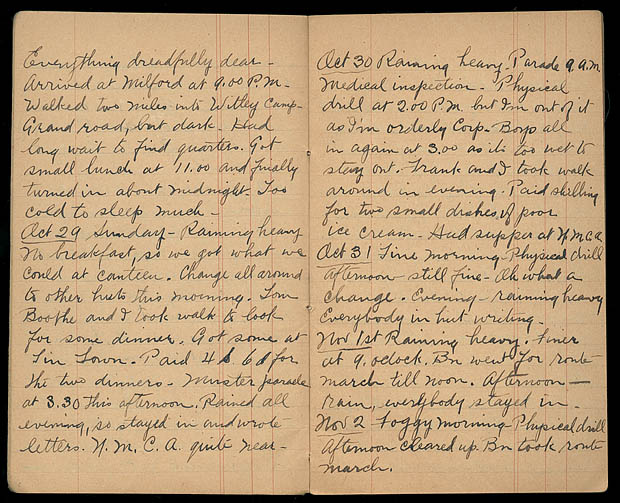 Everything dreadfully dear -
Arrived at Milford at 9.00 P.M. -
Walked two miles into Witley Camp -
Grand road, but dark - Had
long wait to find quarters. Got
small lunch at 11.00 and finally
turned in about midnight - Too
cold to sleep much -
Oct 29 Sunday - Raining heavy
No breakfast, so we got what we
could at canteen. Change all around
to other huts this morning. Tom
Boothe and I took walk to look
for some dinner. Got some at
Tin Town. Paid 4s 6d for
the two dinners - Muster parade
at 3.30 this afternoon. Rained all
evening, so stayed in and wrote
letters. Y. M. C. A. quite near -
Oct 30 Raining heavy. Parade 9. A.M.
Medical inspection - Physical
drill at 2.00 P.M. but I'm out of it
as I'm orderly Corp - Boys all
in again at 3.00 as its too wet to
stay out. Frank and I took walk
around in evening. Paid shilling
for two small dishes of poor
ice cream - Had supper at Y M C A.
Oct 31 Fine morning - Physical drill
afternoon - still fine - Oh what a
change. Evening - raining heavy
Everybody in hut writing.
Nov 1st Raining heavy. Finer
at 9. oclock. Bn went for route
march till noon. Afternoon -
rain, everybody stayed in -
Nov 2 Foggy morning - Physical drill
Afternoon cleared up. Bn took route
march.